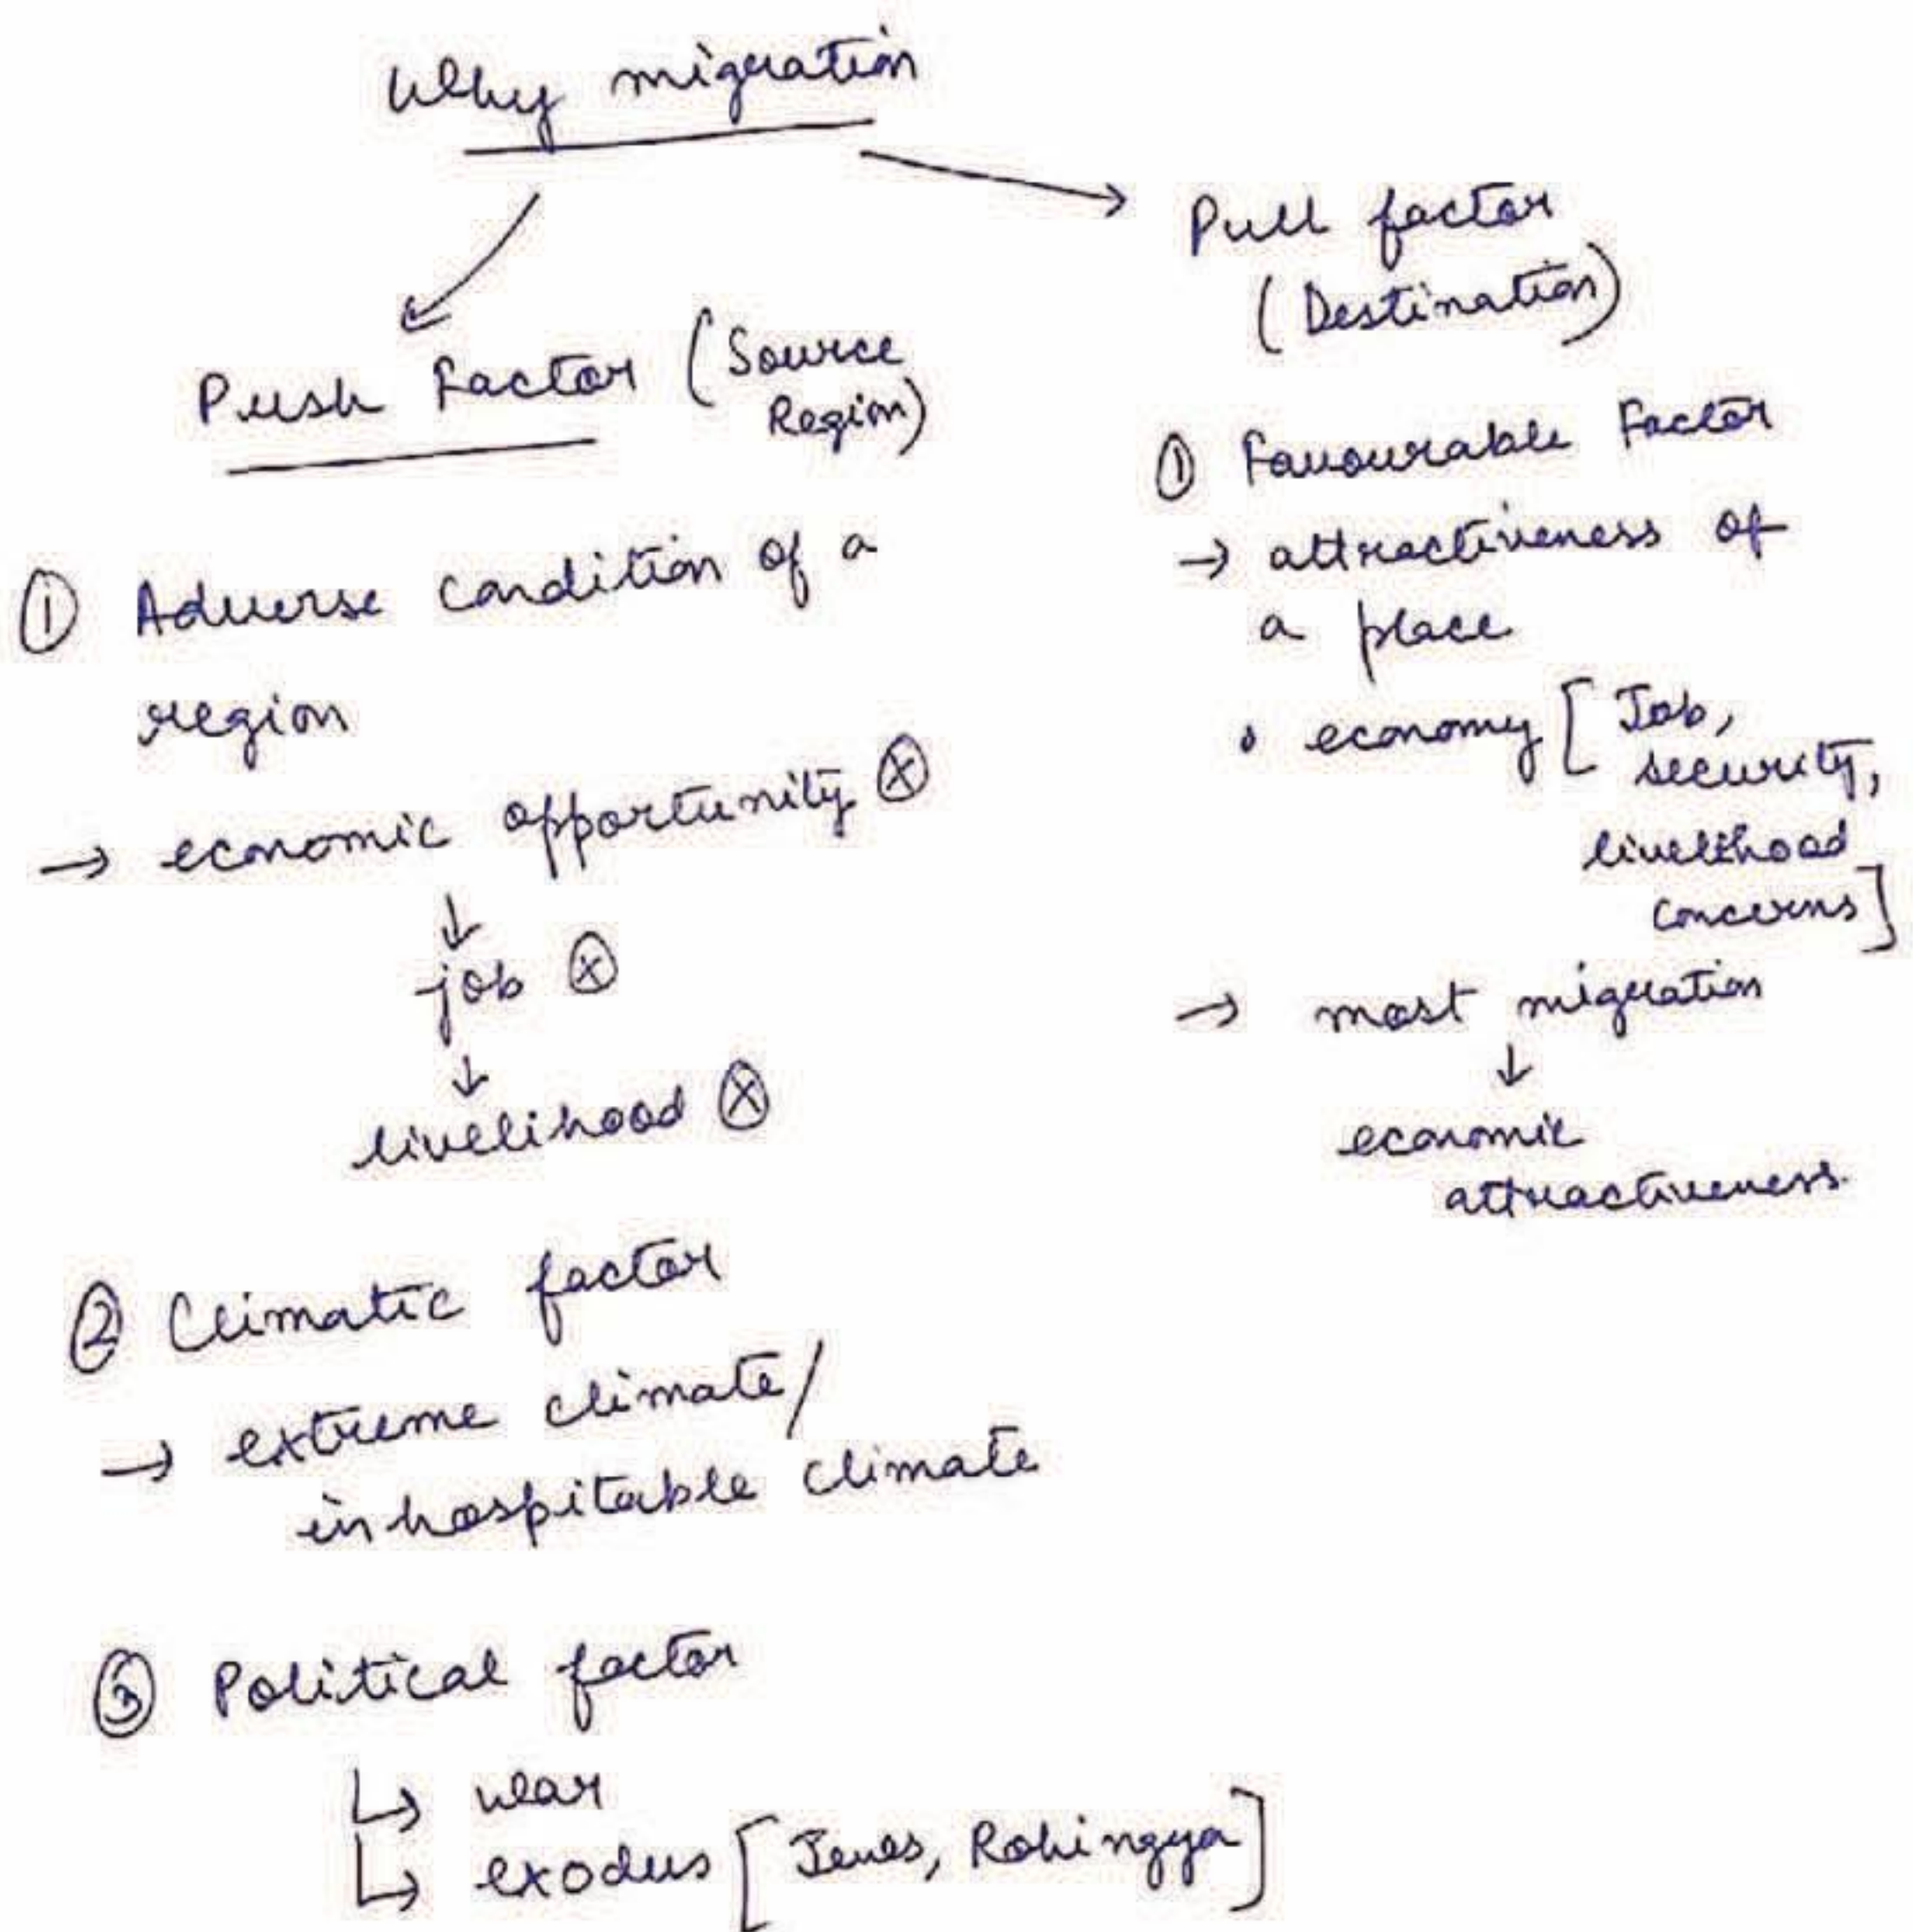 Why migration
Push Factor (Source
Region)
① Adverse condition of a
region
→ economic opportunity ⓧ
↓
job ⓧ
↓
livelihood ⓧ
② Climatic factor
→ extreme climate/
inhospitable climate
③ Political factor
↳ war
↳ exodus [Jews, Rohingya]
Pull factor
(Destination)
① Favourable Factor
→ attractiveness of
a place
• economy [Job,
security,
livelihood
concerns]
→ most migration
↓
economic
attractiveness.